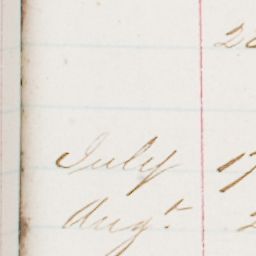 July 17
Augt.